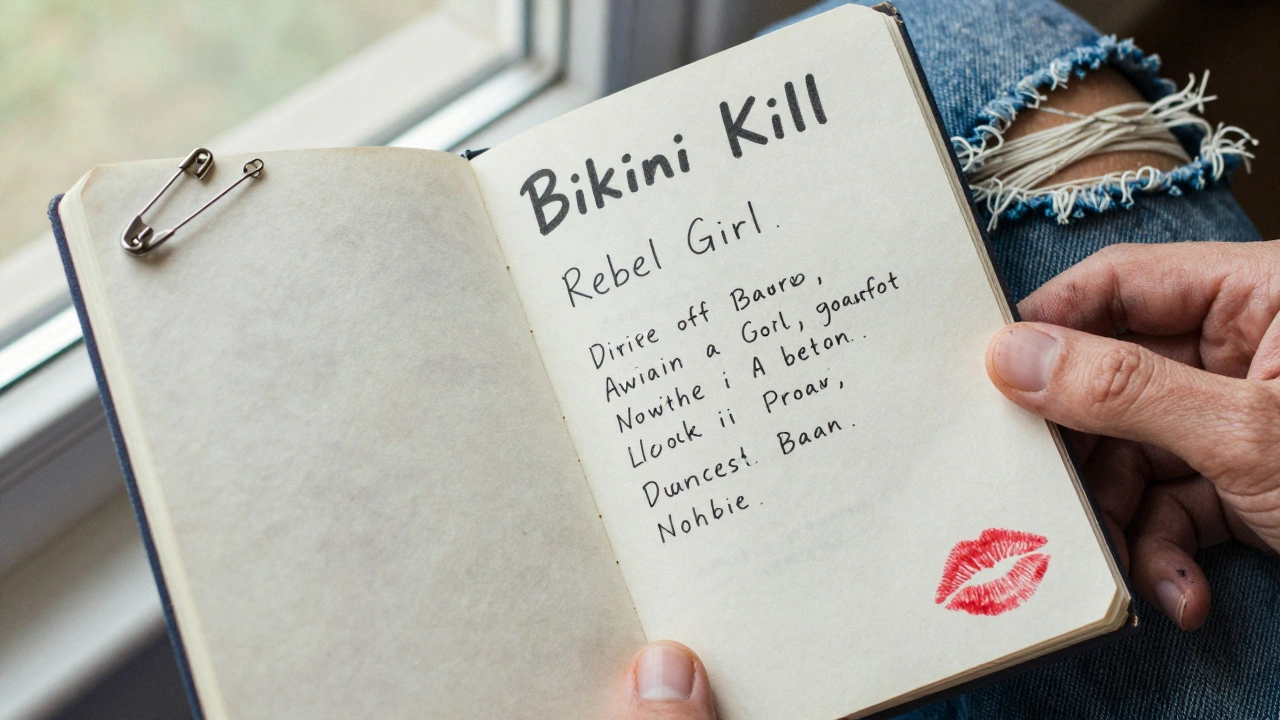 Bikini Kill
Rebel Girl.
Diriee off Bauro,
Awiain a Gorl, goaurfot
Nowithe i A beton..
Llook ii Proau,
Duuncest. Baan.
Nohbie.